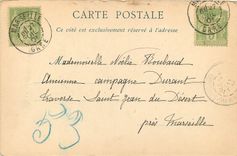 CARTE POSTALE
Ce côté est exclusivement réservé à l'adresse
MARSEILLE
GARE
Mademoiselle Noélie Roubaud
Ancienne campagne Durant
Traverse Saint Jean du Désert
près Marseille
53